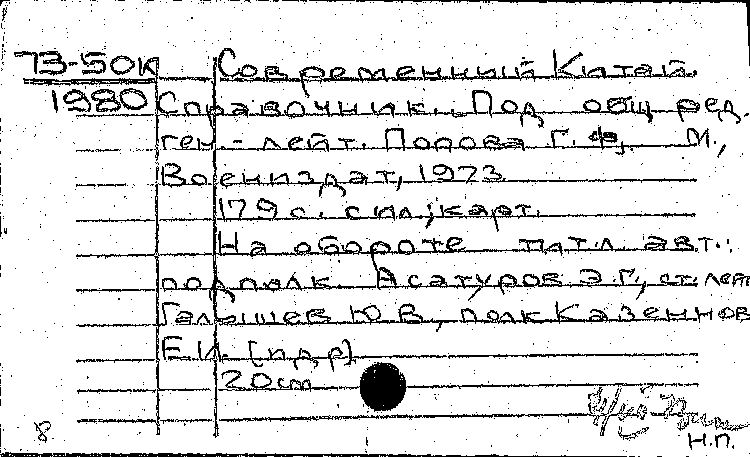 73-50К Современный Китай.
1980 Справочник. Под общ ред.
ген-лейт. Попова Г. Ф, М.,
Воениздат, 1973
179 с. с ил; карт.
На обороте тит.л. авт.:
подполк. Асатуров Э.Г., ст. лейт
Галышев Ю В, полк Казеннов
Е.И. [и др]
20 cm
8
Н.П.